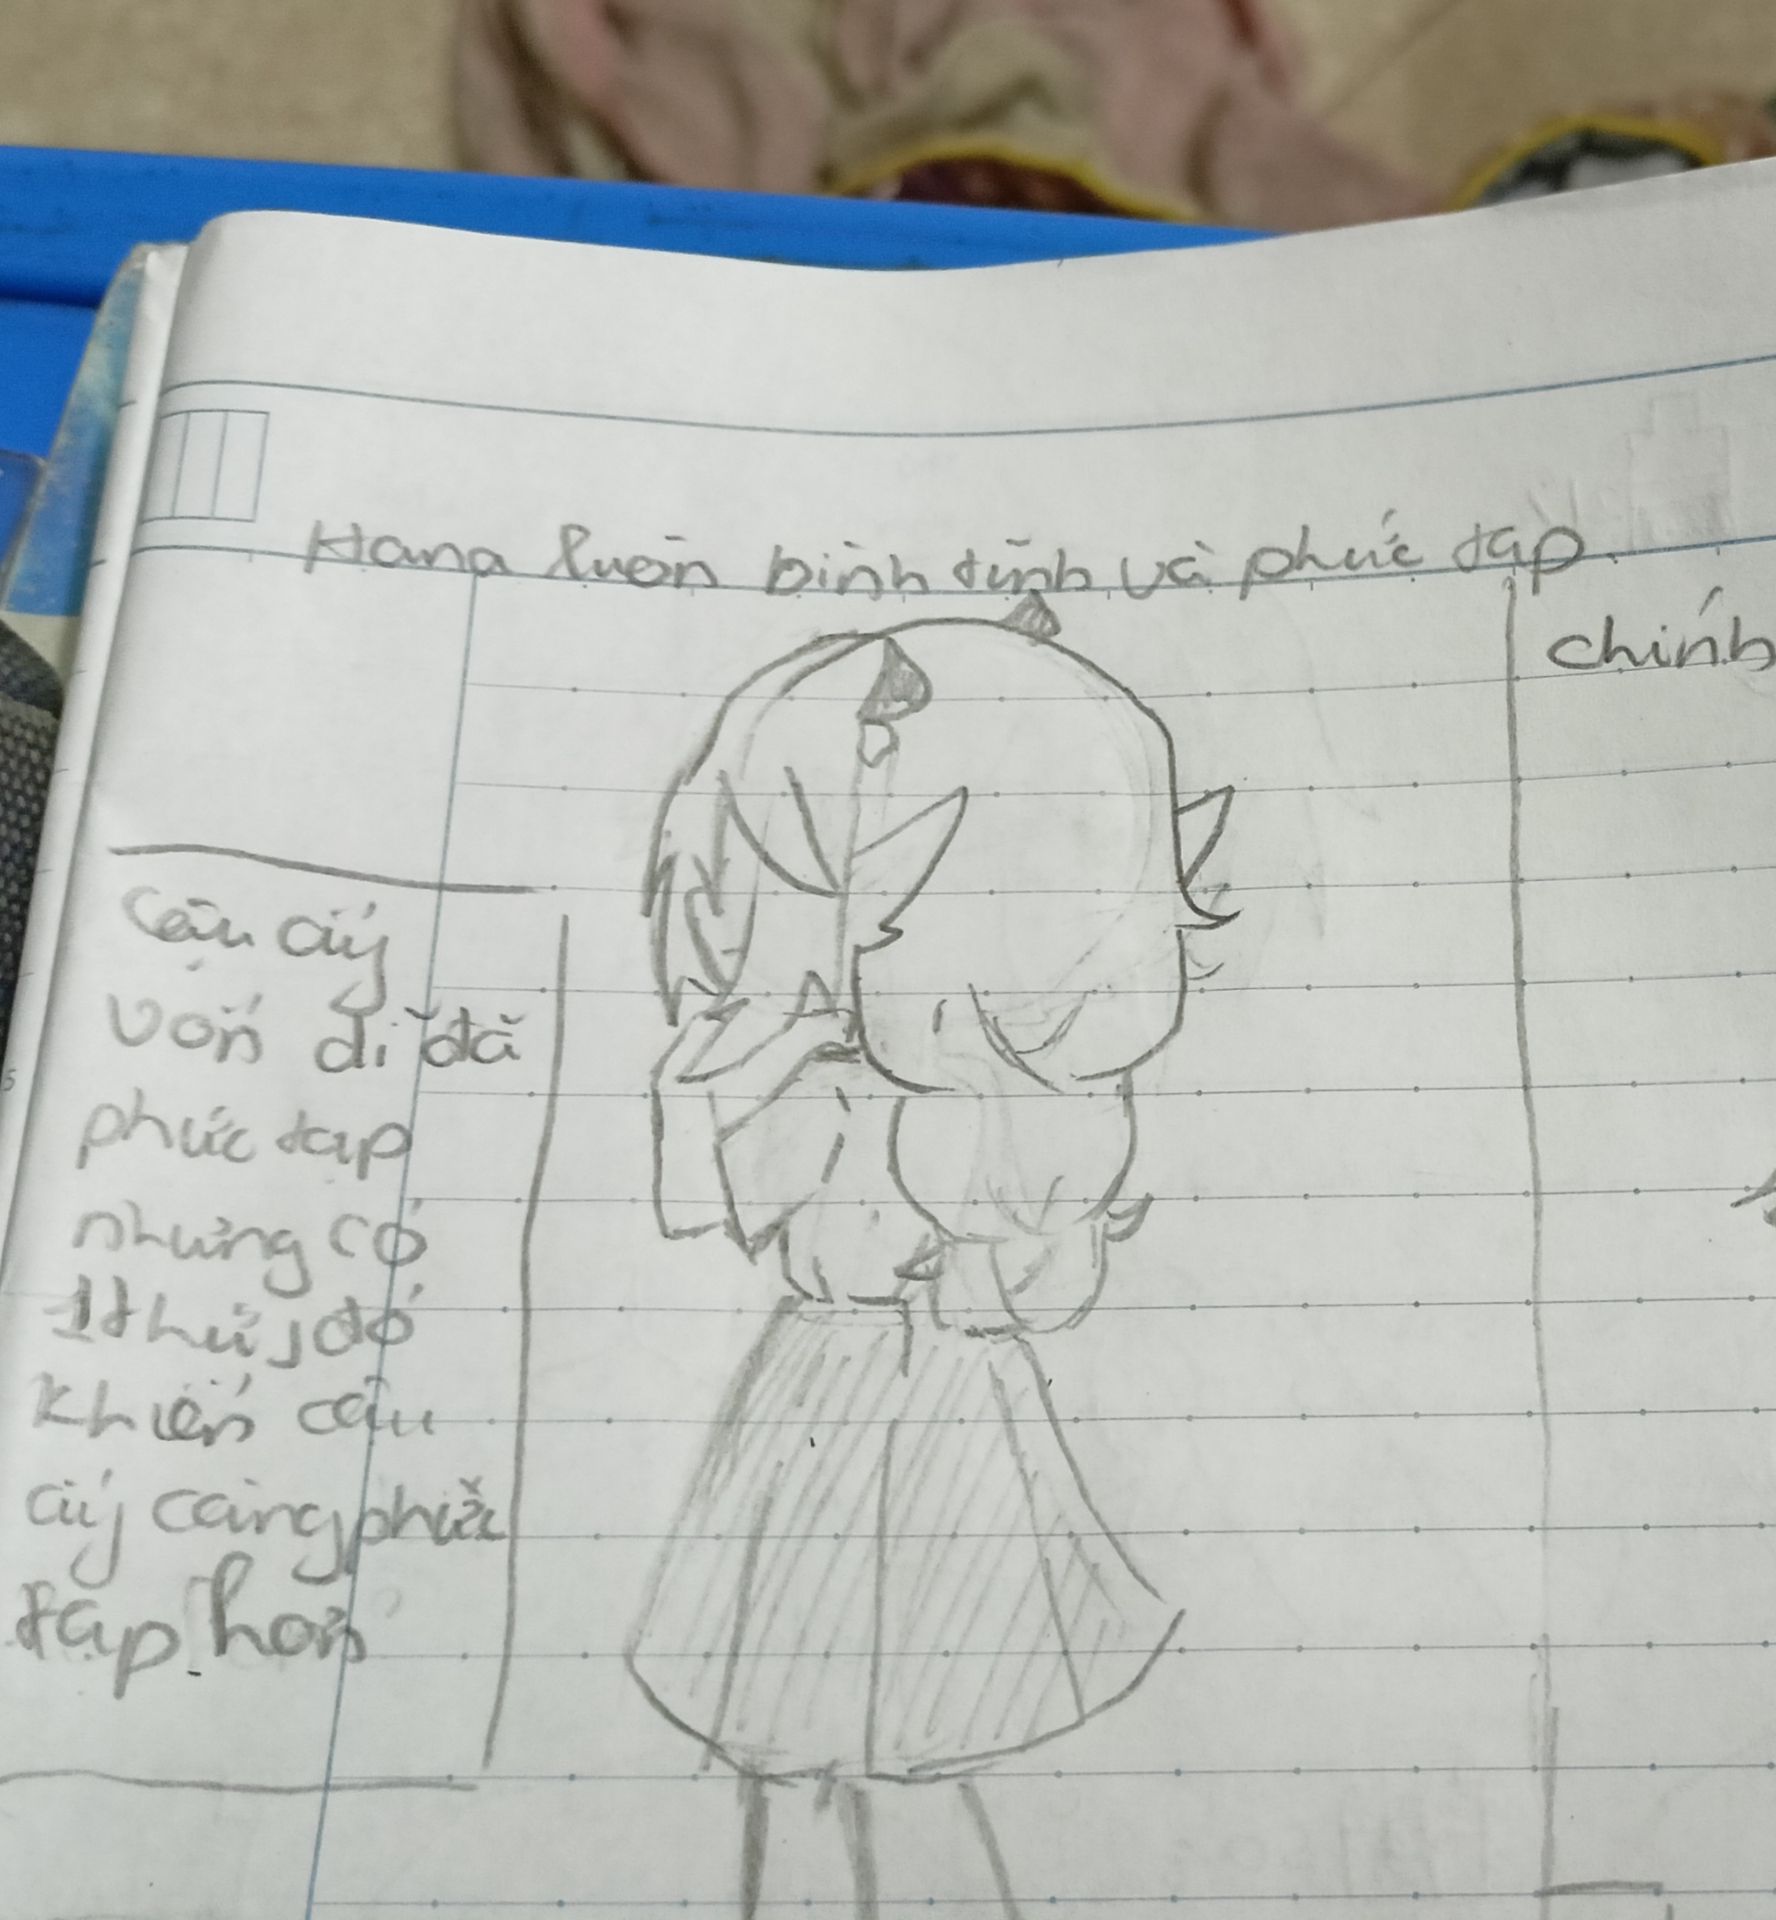 Hana luôn bình tĩnh và phức tạp.
chính
Cậu ấy
vốn dĩ đã
phức tạp
nhưng có
1 thứ, đó
khiến cậu
ấy càng phức
tạp hơn